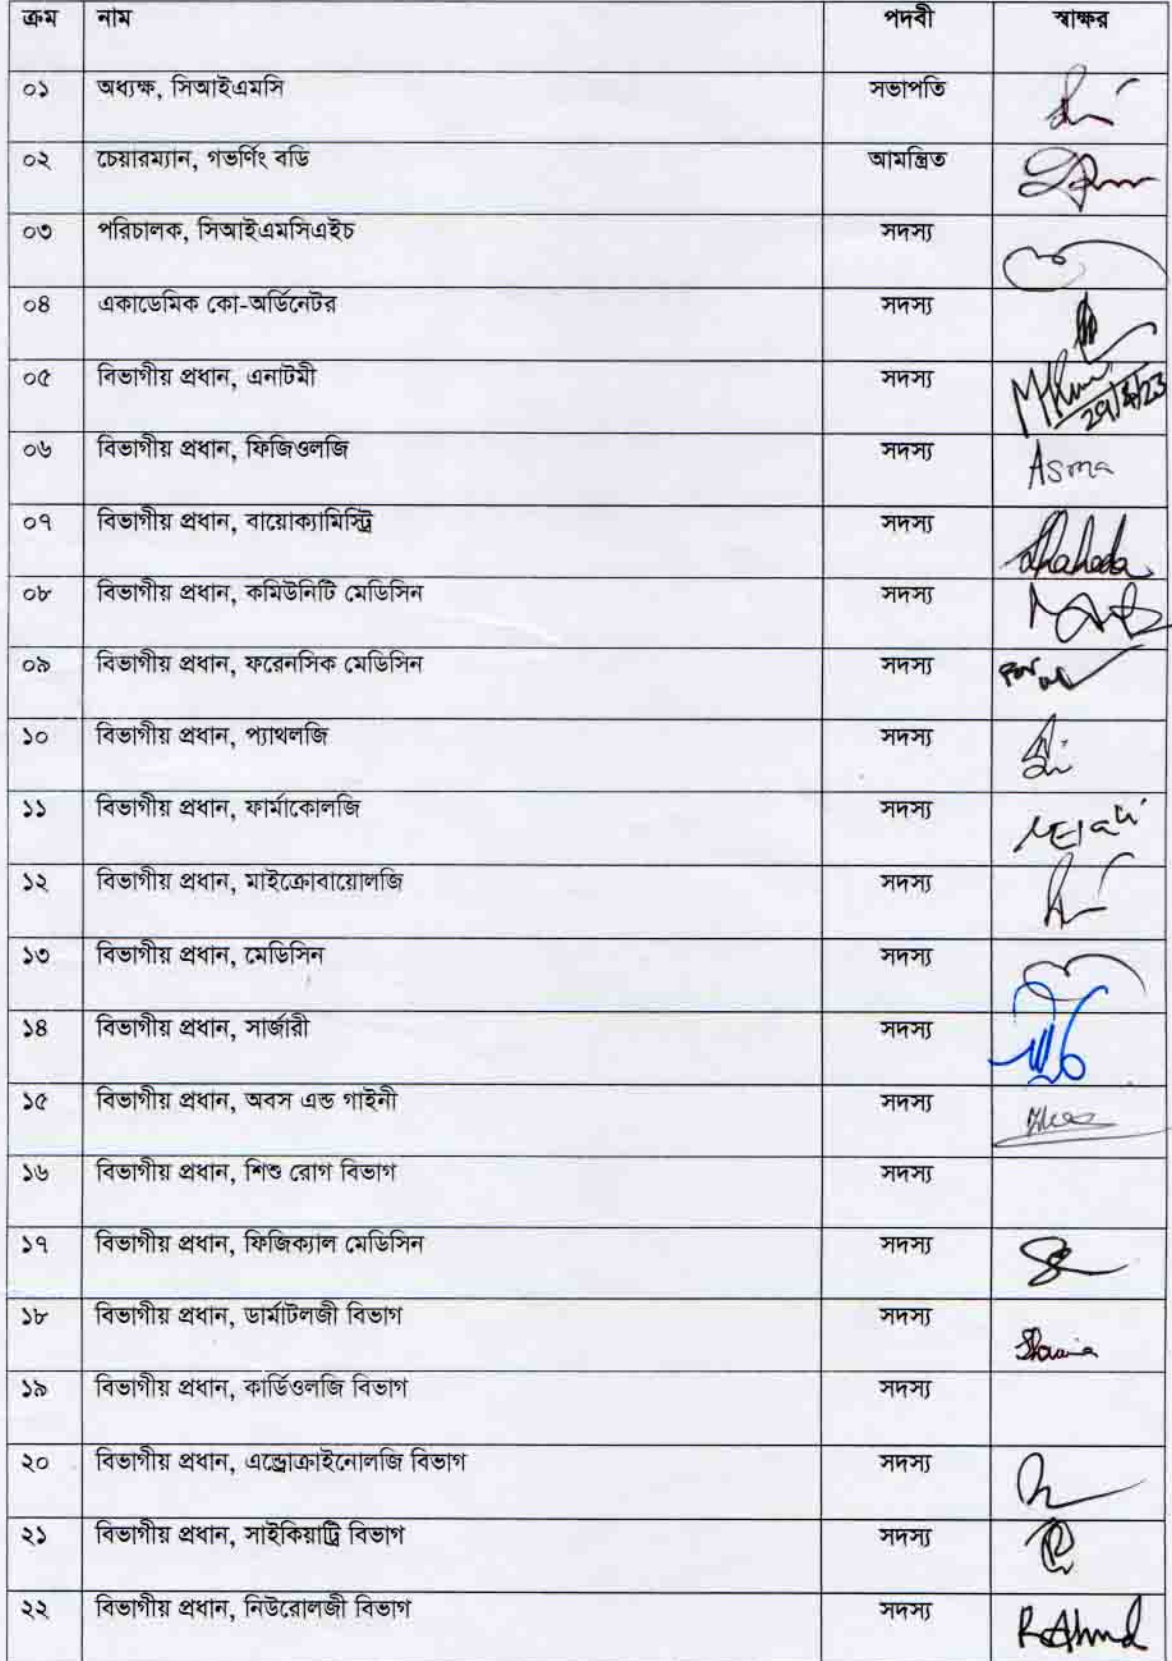 ক্রম নাম পদবী স্বাক্ষর
০১ অধ্যক্ষ, সিআইএমসি সভাপতি
০২ চেয়ারম্যান, গভর্ণিং বডি আমন্ত্রিত
০৩ পরিচালক, সিআইএমসিএইচ সদস্য
০৪ একাডেমিক কো-অর্ডিনেটর সদস্য
০৫ বিভাগীয় প্রধান, এনাটমী সদস্য
০৬ বিভাগীয় প্রধান, ফিজিওলজি সদস্য Asma
০৭ বিভাগীয় প্রধান, বায়োক্যামিস্ট্রি সদস্য Shaheda
০৮ বিভাগীয় প্রধান, কমিউনিটি মেডিসিন সদস্য
০৯ বিভাগীয় প্রধান, ফরেনসিক মেডিসিন সদস্য
১০ বিভাগীয় প্রধান, প্যাথলজি সদস্য
১১ বিভাগীয় প্রধান, ফার্মাকোলজি সদস্য
১২ বিভাগীয় প্রধান, মাইক্রোবায়োলজি সদস্য
১৩ বিভাগীয় প্রধান, মেডিসিন সদস্য
১৪ বিভাগীয় প্রধান, সার্জারী সদস্য
১৫ বিভাগীয় প্রধান, অবস এন্ড গাইনী সদস্য
১৬ বিভাগীয় প্রধান, শিশু রোগ বিভাগ সদস্য
১৭ বিভাগীয় প্রধান, ফিজিক্যাল মেডিসিন সদস্য
১৮ বিভাগীয় প্রধান, ডার্মাটলজী বিভাগ সদস্য
১৯ বিভাগীয় প্রধান, কার্ডিওলজি বিভাগ সদস্য
২০ বিভাগীয় প্রধান, এন্ড্রোক্রাইনোলজি বিভাগ সদস্য
২১ বিভাগীয় প্রধান, সাইকিয়াট্রি বিভাগ সদস্য
২২ বিভাগীয় প্রধান, নিউরোলজী বিভাগ সদস্য